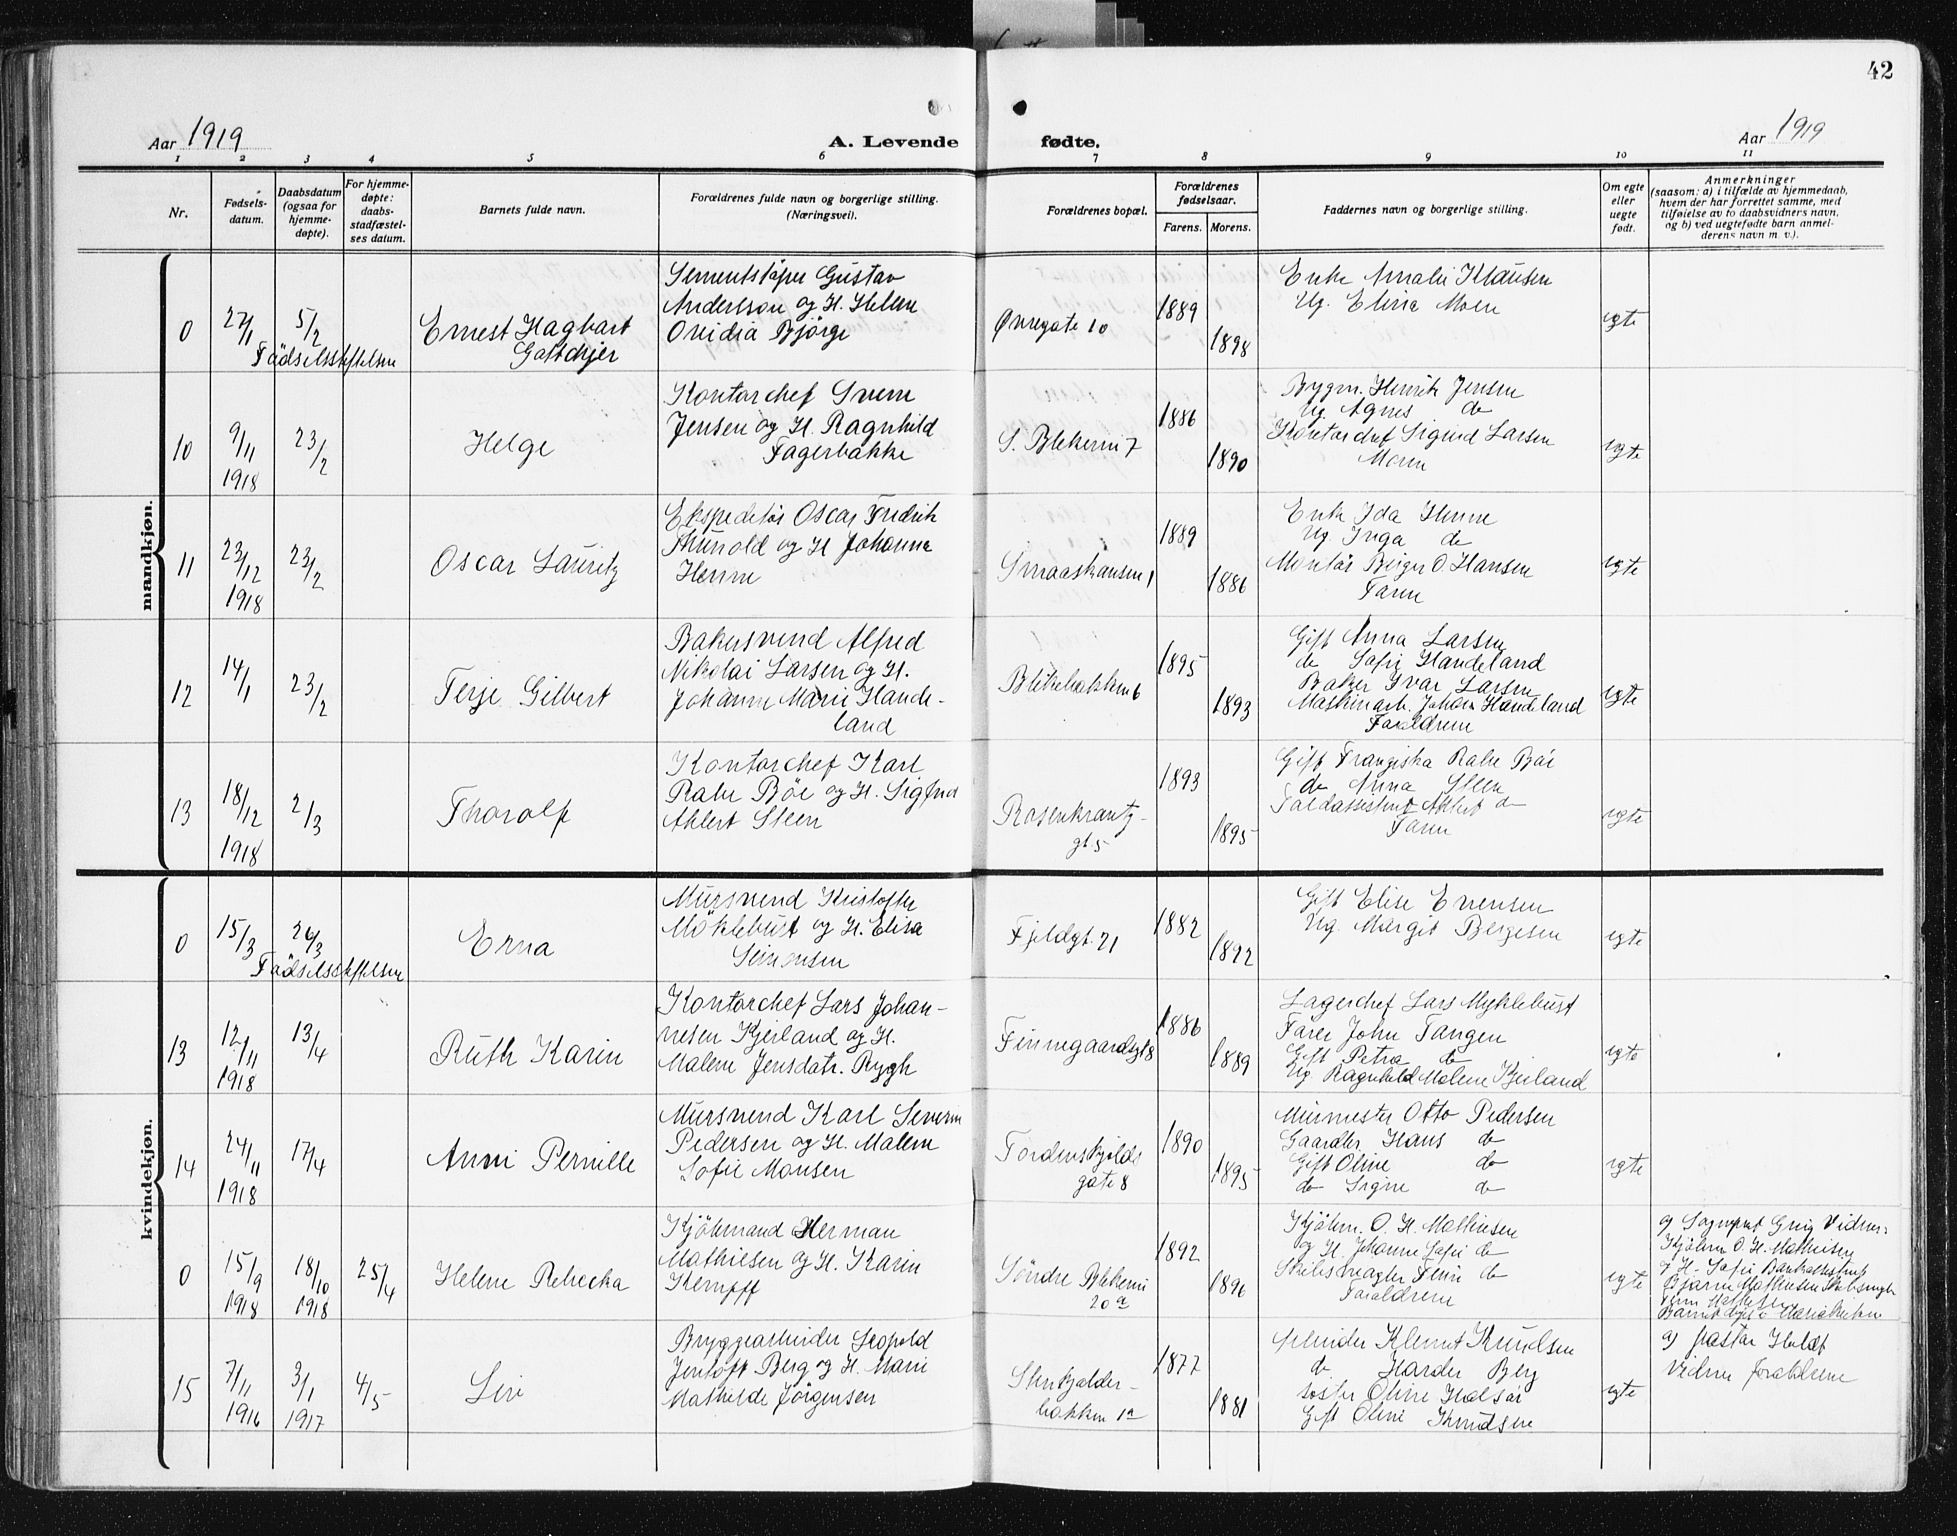 42
Aar 1919
A. Levende fødte.
Aar 1919
1 2 3 4 5 6 7 8 9 10 11
Nr.
Fødsels-
datum.
Daabsdatum
(ogsaa for
hjemme-
døpte).
For hjemme-
døpte:
daabs-
stadfæstel-
ses datum.
Barnets fulde navn.
Forældrenes fulde navn og borgerlige stilling.
(Næringsvei).
Forældrenes bopæl.
Forældrenes
fødselsaar.
Farens. Morens.
Faddernes navn og borgerlige stilling.
Om egte
eller
uegte
født.
Anmerkninger
(saasom: a) i tilfælde av hjemmedaab,
hvem der har forrettet samme, med
tilføielse av to daabsvidners navn,
og b) ved uegtefødte barn anmel-
derens navn m. v.).
mandkjøn.
0
27/1
5/2
Födselsstiftelsen
Ernest Hagbart
Gottchjer
Gustav
Andersson og H. Helene
Ovidia Bjørge
Øvregate 10
1889
1898
Enke Amalie Klausen
Ug. Elina Moen
egte
10
9/11
1918
23/2
Helge
Kontorchef Svenn
Jensen og H. Ragnhild
Fagerbakke
S. Blekevei 7
1886
1890
Bygm. Henrik Jensen
Ug. Agnes do
Kontorchef Sigurd Larsen
Moren
egte
11
23/12
1918
23/2
Oscar Lauritz
Ekspeditør Oscar Fredrik
Thunold og H. Johanne
Henne
Smaaskansen 1
1889
1886
Enke Ida Henne
Ug. Inga do
Montör Birger O Hansen
Faren
egte
12
14/1
23/2
Terje Gilbert
Bakersvend Alfred
Nikolai Larsen og H.
Johanne Marie Hande-
land
Blekebakken 6
1895
1893
Gift Anna Larsen
do Sofie Handeland
Baker Ivar Larsen
Maskinarb. Johan Handeland
Forældrene
egte
13
18/12
1918
2/3
Thorolf
Kontorchef Karl
Rabe Böe og H. Signe
Ahlert Steen
Rosenkrantz-
gt. 5
1893
1895
Gift Franziska Rabe Böe
do Anna Steen
Toldassistent Ahlert do
Faren
egte
kvindekjøn.
0
15/3
26/3
Födselsstiftelsen
Erna
Mursvend Kristoffer
Möklebust og H. Elisa
Simonsen
Fjeldgt. 21
1882
1892
Gift Elise Evensen
Ug. Margit Bergesen
egte
13
12/11
1918
13/4
Ruth Karin
Kontorchef Lars Johan-
nesen Kjeiland og H.
Malene Jensdatr. Rygh
Finnegaardsgt 8
1886
1889
Lagerchef Lars Myklebust
Fører John Tangen
Gift Petra do
Ug. Ragnhild Malene Kjeiland
egte
14
24/11
1918
17/4
Anni Pernille
Mursvend Karl Severin
Pedersen og H. Malene
Sofie Monsen
Tordenskjolds
gate 8
1890
1895
Murmester Otto Pedersen
Gaardbr. Hans do
Gift Oline do
do Signe do
egte
0
15/9
1918
18/10
1918
25/4
Helene Rebecka
Kjöbmand Herman
Mathiesen og H. Karin
Kempff
Söndre Blekevei
20 a
1892
1896
Kjöbm. O. H. Mathiesen
og H. Johanne Sofie do
Skibsmægler Finn do
Forældrene
egte
a) Sogneprest Grieg Vidner:
Kjöbm O. H. Mathiesen
og H. Sofie Bankassistent
Bjarne Mathiesen Skibsmægler
Finn Mathiesen
Barnet døpt i Mariakirken
15
7/11
1916
3/1
1917
4/5
Liv
Bryggearbeider Leopold
Jentoft Berg og H. Marie
Mathilde Jörgensen
Stenkjelder-
bakken 1a
1877
1881
Arbeider Klemet Knudsen
do Harder Berg
Söster Oline Halsör
Gift Oline Knudsen
egte
a) pastor Holdt
Vidner forældrene